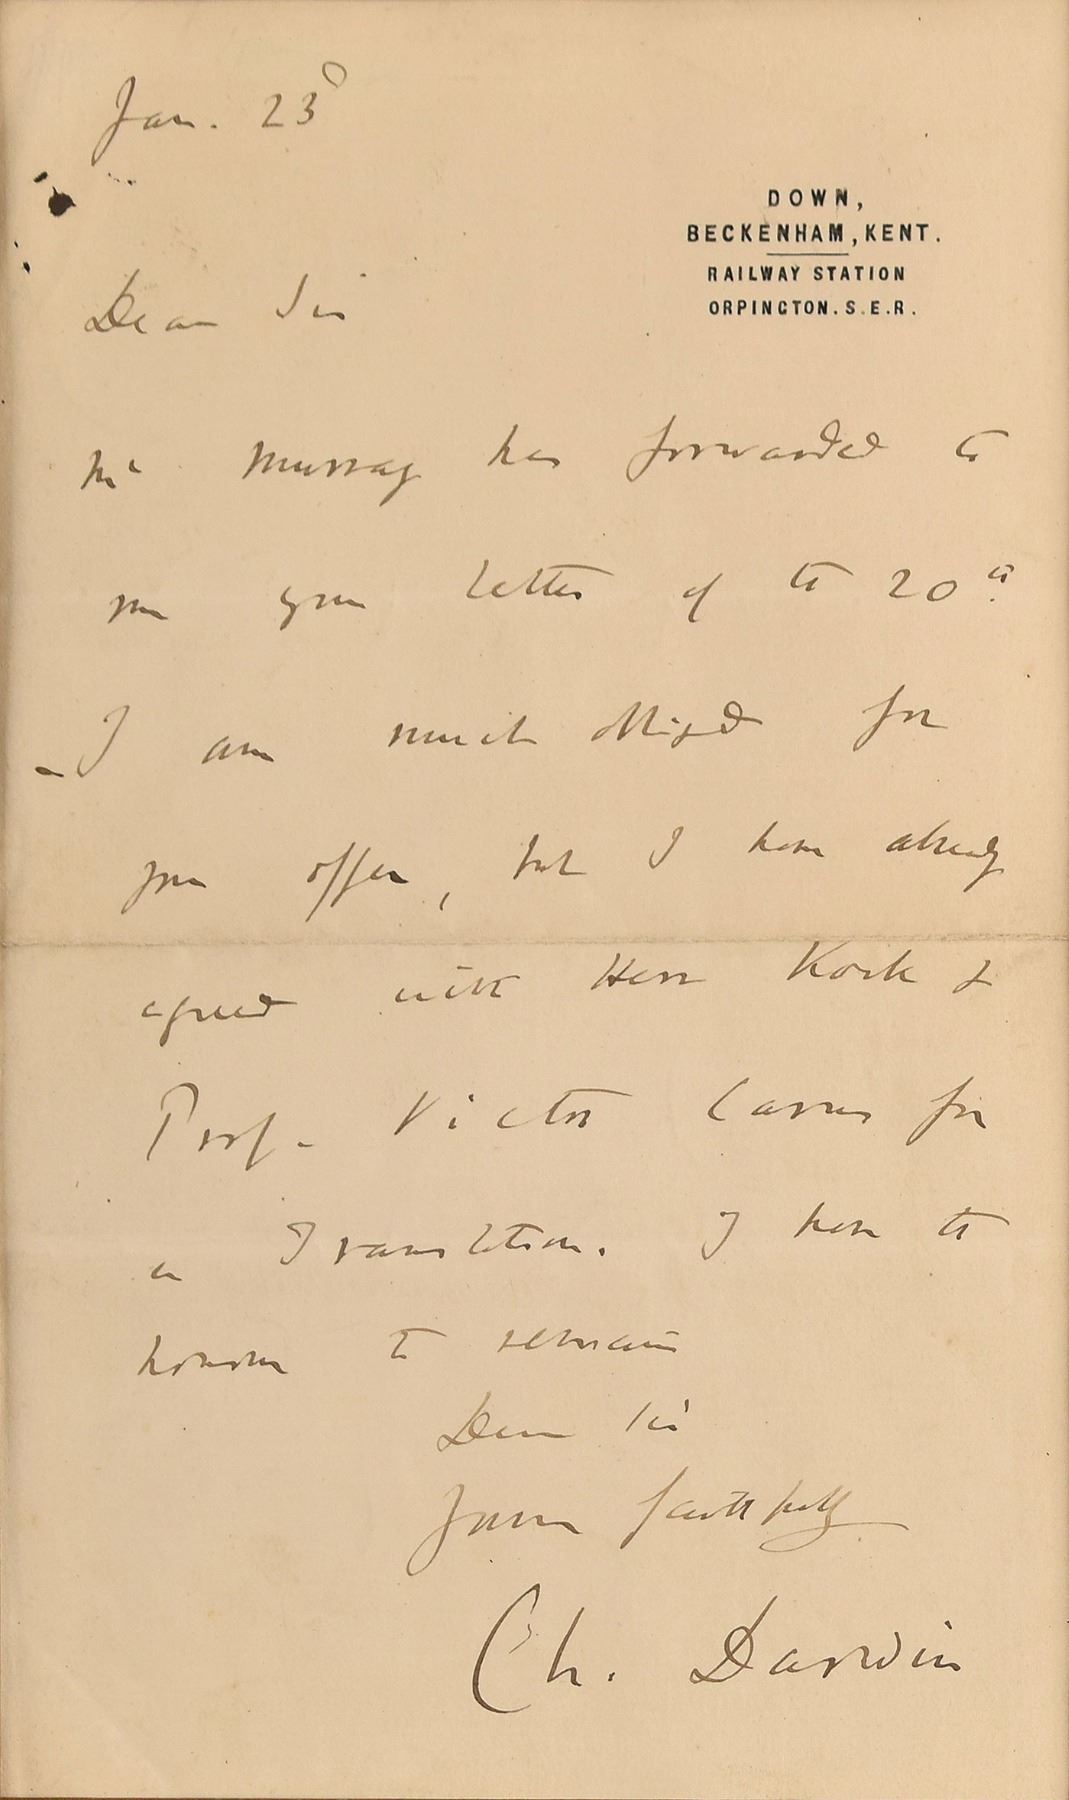 Jan. 23d
DOWN,
BECKENHAM, KENT.
RAILWAY STATION
ORPINGTON. S.E.R.
Dear Sir
Mr Murray has forwarded to
me your letter of the 20th.
I am much obliged for
your offer, but I have already
agreed with Herr Koch &
Prof. Victor Carus for
a Translation. I have the
honour to remain
Dear Sir
Yours faithfully
Ch. Darwin